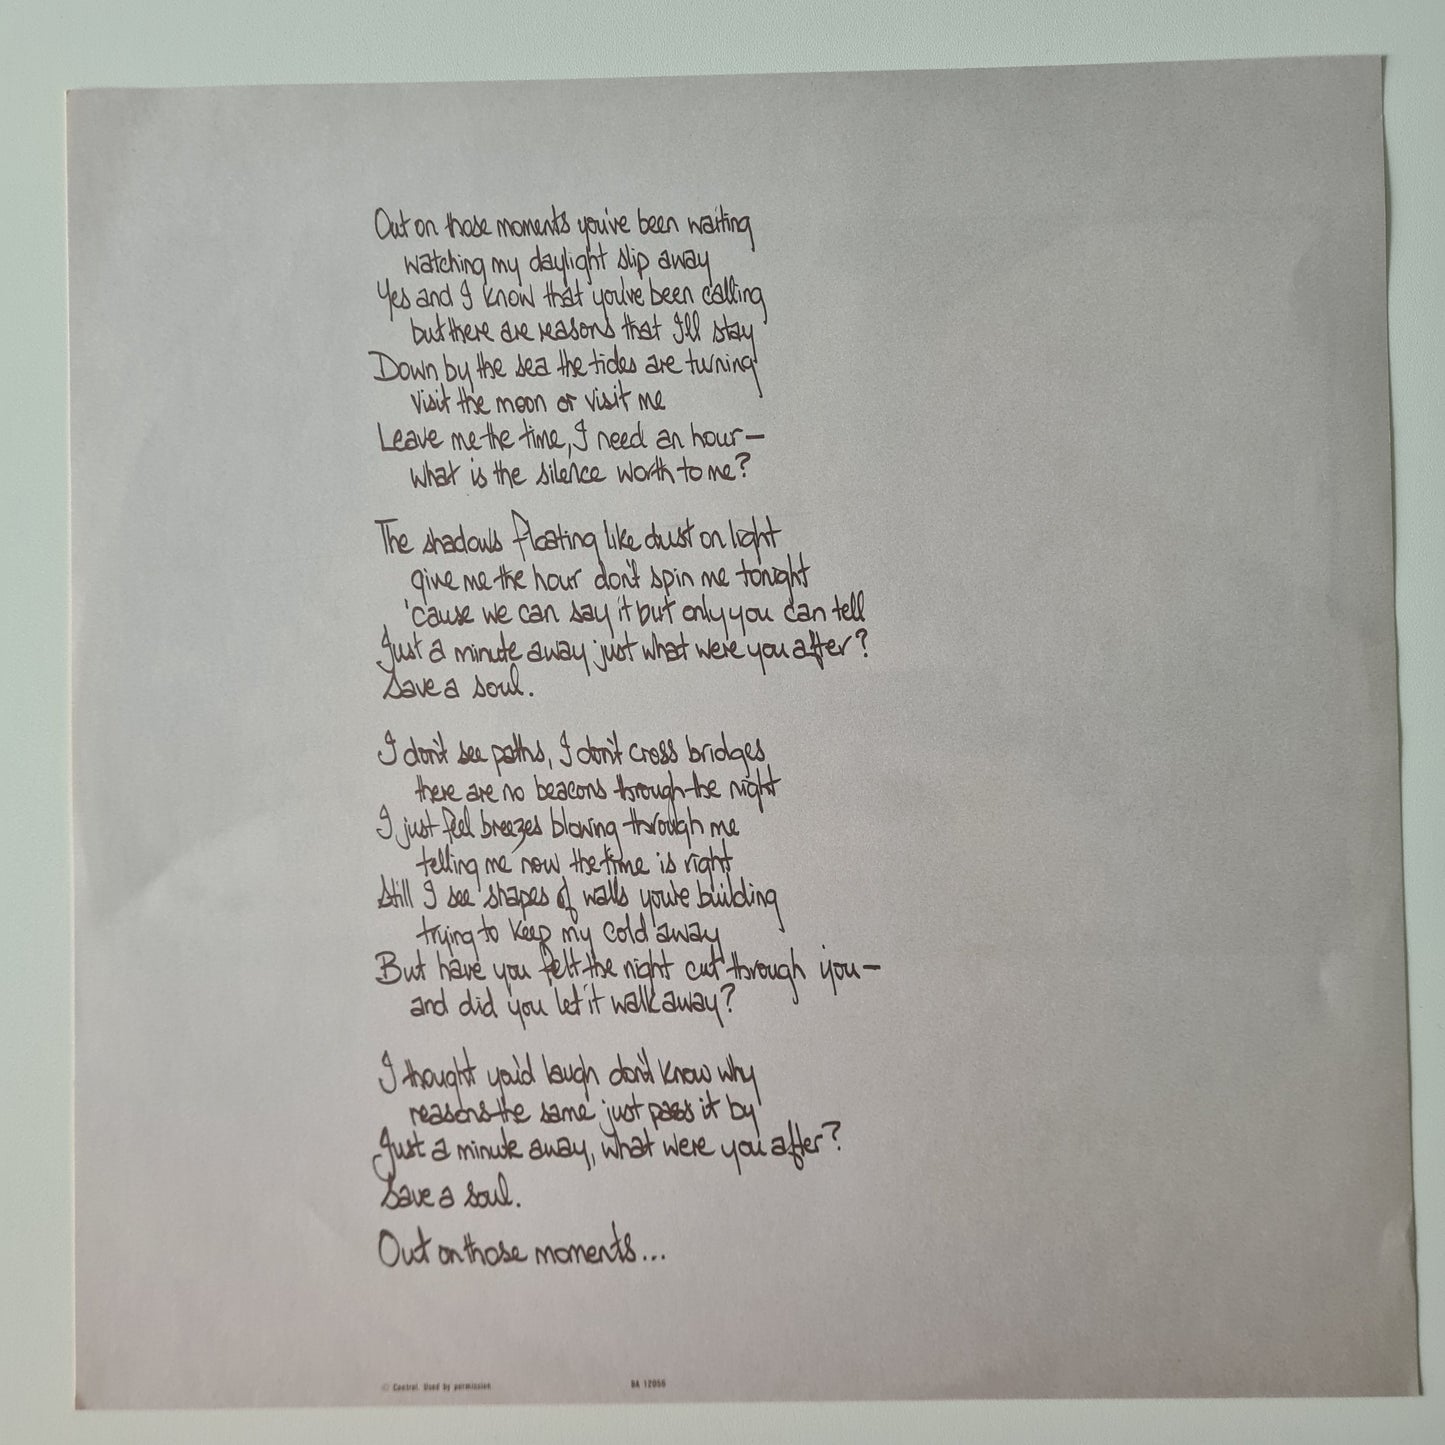 Out on those moments you've been waiting
watching my daylight slip away
Yes and I know that you've been calling
but there are reasons that I'll stay
Down by the sea the tides are turning
visit the moon or visit me
Leave me the time, I need an hour—
what is the silence worth to me?
The shadows floating like dust on light
give me the hour don't spin me tonight
'cause we can say it but only you can tell
Just a minute away just what were you after?
Save a soul.
I don't see paths, I don't cross bridges
there are no beacons through the night
I just feel breezes blowing through me
telling me now the time is right
Still I see shapes of walls you're building
trying to keep my cold away
But have you felt the night cut through you—
and did you let it walk away?
I thought you'd laugh don't know why
reasons the same just pass it by
Just a minute away, what were you after?
Save a soul.
Out on those moments...
© Control. Used by permission BA 12056